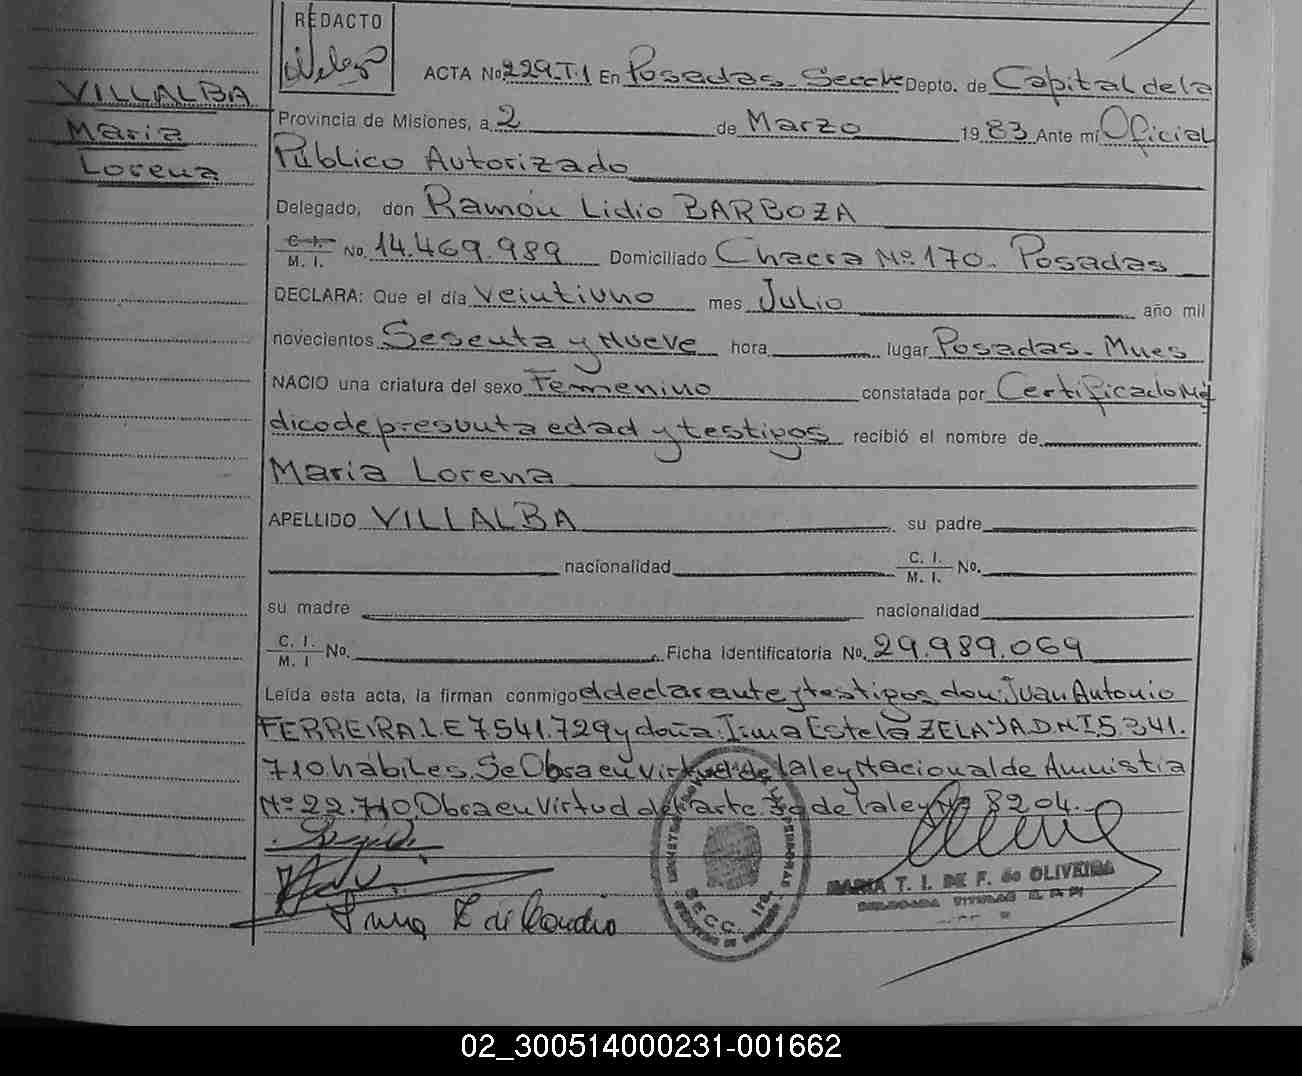 REDACTO
ACTA No. 229.T.1 En Posadas - Secc 1ª Depto. de Capital de la
VILLALBA
Maria
Lorena
Provincia de Misiones, a 2 de Marzo 1983 Ante mí Oficial
Público Autorizado
Delegado, don Ramón Lidio BARBOZA
C. I.
M. I. No. 14.469.989 Domiciliado Chacra Nº 170. Posadas
DECLARA: Que el día veintiuno mes Julio año mil
novecientos Sesenta y Nueve hora lugar Posadas - Mnes
NACIO una criatura del sexo Femenino constatada por Certificado Mé
dico de presunta edad y testigos recibió el nombre de
Maria Lorena
APELLIDO VILLALBA su padre
nacionalidad C. I.
M. I. No.
su madre nacionalidad
C. I.
M. I No. Ficha Identificatoria No. 29.989.069
Leída esta acta, la firman conmigo el declarante y testigos don: Juan Antonio
FERREIRA LE 7541.729 y doña: Irma Estela ZELAYA D.N.I 5.341.
710 hábiles. Se Obra en virtud de la ley Nacional de Amnistia
Nº 22.710. Obra en Virtud del arte. 30 de la ley Nº 8204.
MARIA T. I. DE F. de OLIVEIRA
DELEGADA TITULAR
SECC. 1ra.
02_300514000231-001662